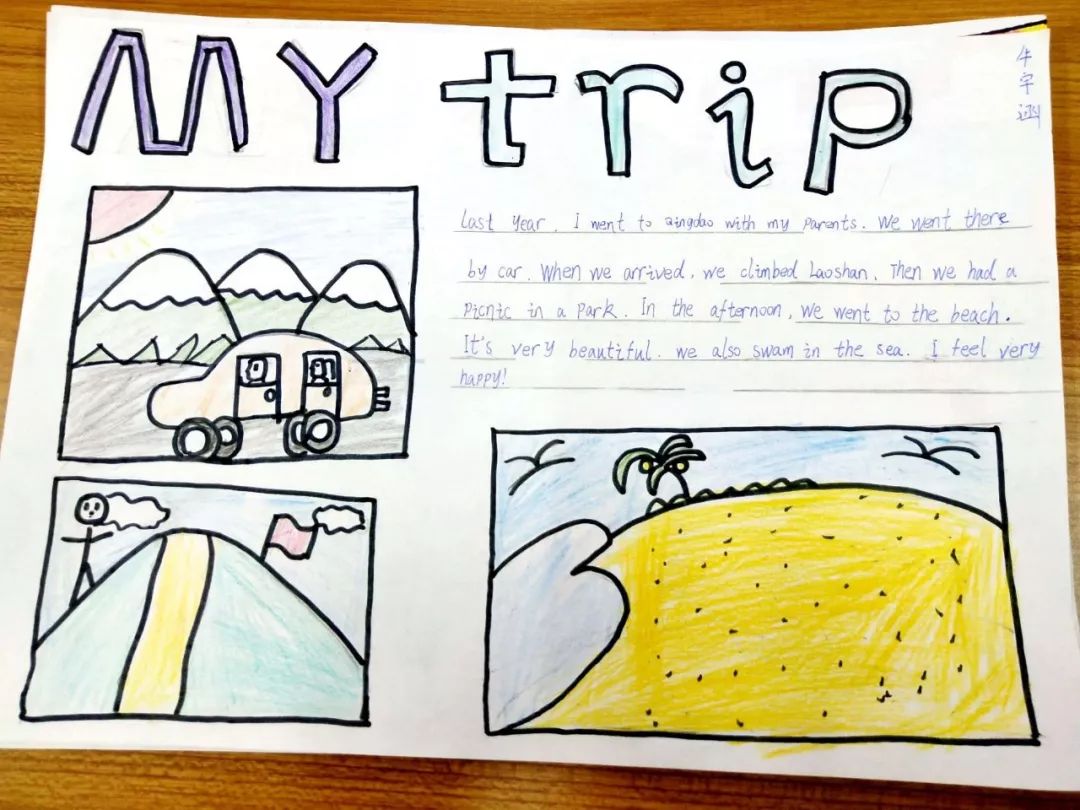 My trip
牛宇涵
Last year, I went to Qingdao with my parents. We went there
by car. When we arrived, we climbed Laoshan. Then we had a
picnic in a park. In the afternoon, we went to the beach.
It's very beautiful. we also swam in the sea. I feel very
happy!